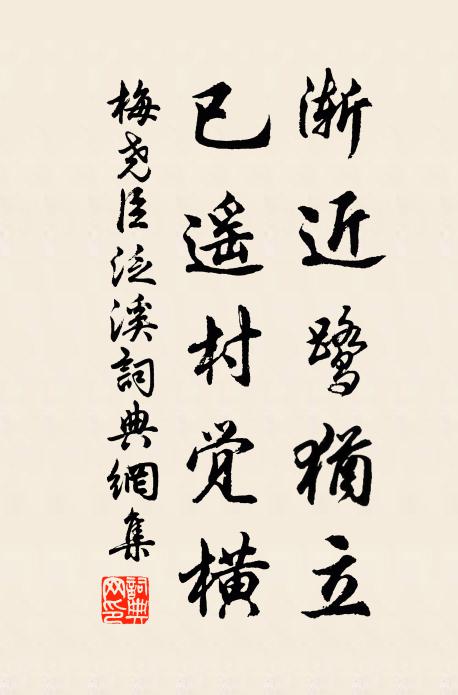 渐近鹭犹立
已遥村觉横
梅尧臣泛溪詞典網集
詞典網印